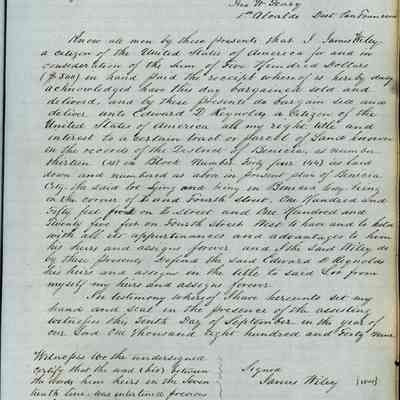 Jno W. Geary
1st Alcalde Dist San Francisco
Know all men by these presents that I James Wiley
a citizen of the United States of America for and in
consideration of the Sum of Five Hundred Dollars
($500) in hand paid the receipt whereof is hereby duly
acknowledged have this day bargained sold and
delived, and by these presents do bargain sell and
deliver unto Edward D Reynolds a Citizen of the
United States of America all my right title and
interest to a certain tract or parcel of Land known
in the records of the District of Benicia, as number
thirteen (13) in Block Number Forty four (44) as laid
down and numbered as above in present plan of Benicia
City. the said lot lying and being in Benicia City being
on the corner of and Fourth Street. One Hundred and
Fifty feet on street and One Hundred and
Twenty five feet on Fourth Street West to have and to hold
with all its appurtenances and advantages to him
his heirs and assigns forever and I the said Wiley do
by these presents Defend the said Edward D Reynolds
his heirs and assigns in the title to said Lot from
myself my heirs and assigns forever
In testimony whereof I have hereunto set my
hand and seal in the presence of the attesting
witnesses this Tenth Day of September in the year of
our Lord One thousand Eight hundred and Forty Nine
Witnesses We the undersigned
certify that the word (his) between
the words him heirs in the Seven
teenth line, was interlined previous
Signed
James Wiley